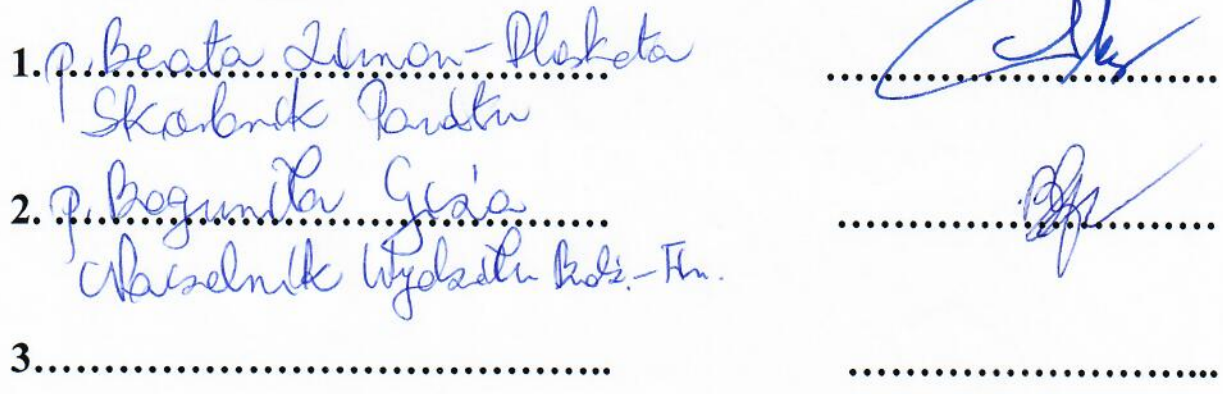 1. p. Beata Zimon-Plaskota
Skarbnik Powiatu
2. p. Bogumiła
Naczelnik Wydziału Budż.-Fin.
3.